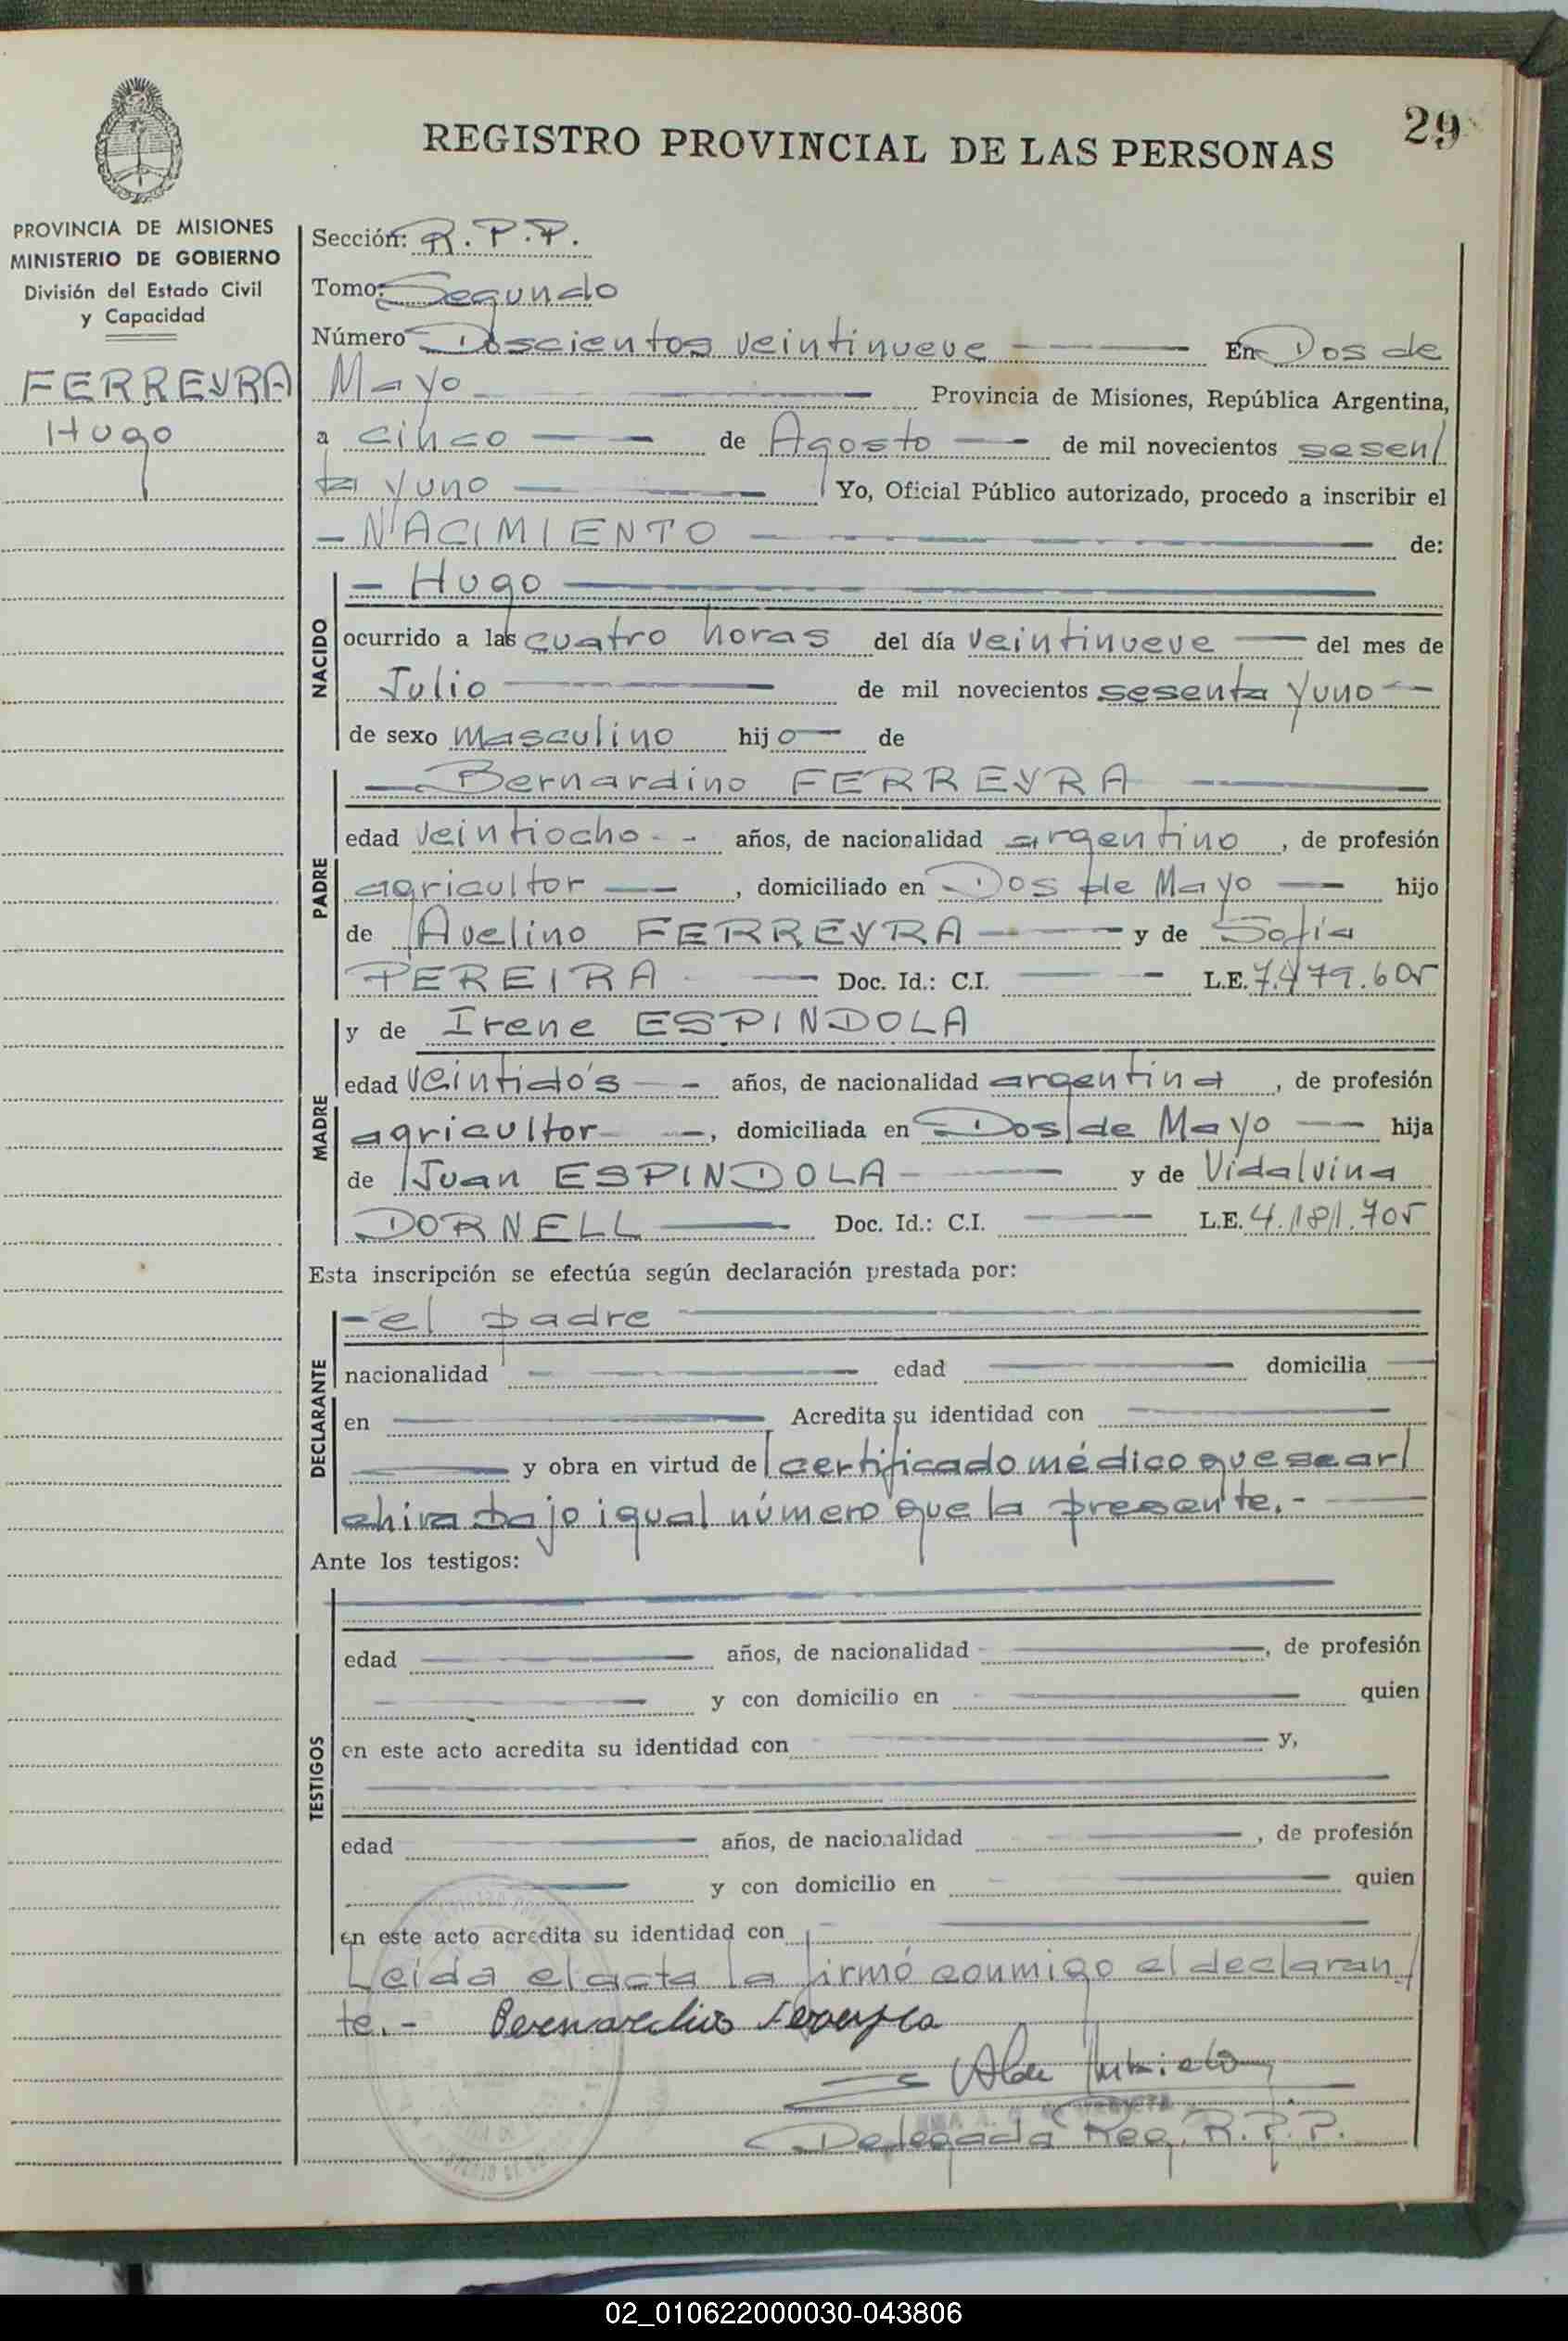 29
REGISTRO PROVINCIAL DE LAS PERSONAS
PROVINCIA DE MISIONES
MINISTERIO DE GOBIERNO
División del Estado Civil
y Capacidad
FERREYRA
Hugo
Sección: R.P.P.
Tomo: Segundo
Número Doscientos veintinueve En Dos de
Mayo Provincia de Misiones, República Argentina,
a cinco de Agosto de mil novecientos sesen/
ta y uno Yo, Oficial Público autorizado, procedo a inscribir el
- NACIMIENTO de:
NACIDO
- Hugo
ocurrido a las cuatro horas del día veintinueve del mes de
Julio de mil novecientos sesenta y uno
de sexo masculino hijo de
PADRE
Bernardino FERREYRA
edad veintiocho años, de nacionalidad argentino, de profesión
agricultor, domiciliado en Dos de Mayo hijo
de Avelino FERREYRA y de Sofía
PEREIRA Doc. Id.: C.I. L.E. 7.479.605
MADRE
y de Irene ESPINDOLA
edad veintidós años, de nacionalidad argentina, de profesión
agricultor, domiciliada en Dos de Mayo hija
de Juan ESPINDOLA y de Vidalvina
DORNELL Doc. Id.: C.I. L.E. 4.181.705
Esta inscripción se efectúa según declaración prestada por:
DECLARANTE
- el padre
nacionalidad edad domicilia
en Acredita su identidad con
y obra en virtud de certificado médico que se ar/
chiva bajo igual número que la presente.-
Ante los testigos:
TESTIGOS
edad años, de nacionalidad , de profesión
y con domicilio en quien
en este acto acredita su identidad con y,
edad años, de nacionalidad , de profesión
y con domicilio en quien
en este acto acredita su identidad con
Leida el acta la firmó conmigo el declaran/
te.- Bernardino Ferreyra
Delegada Reg. R.P.P.
02_010622000030-043806